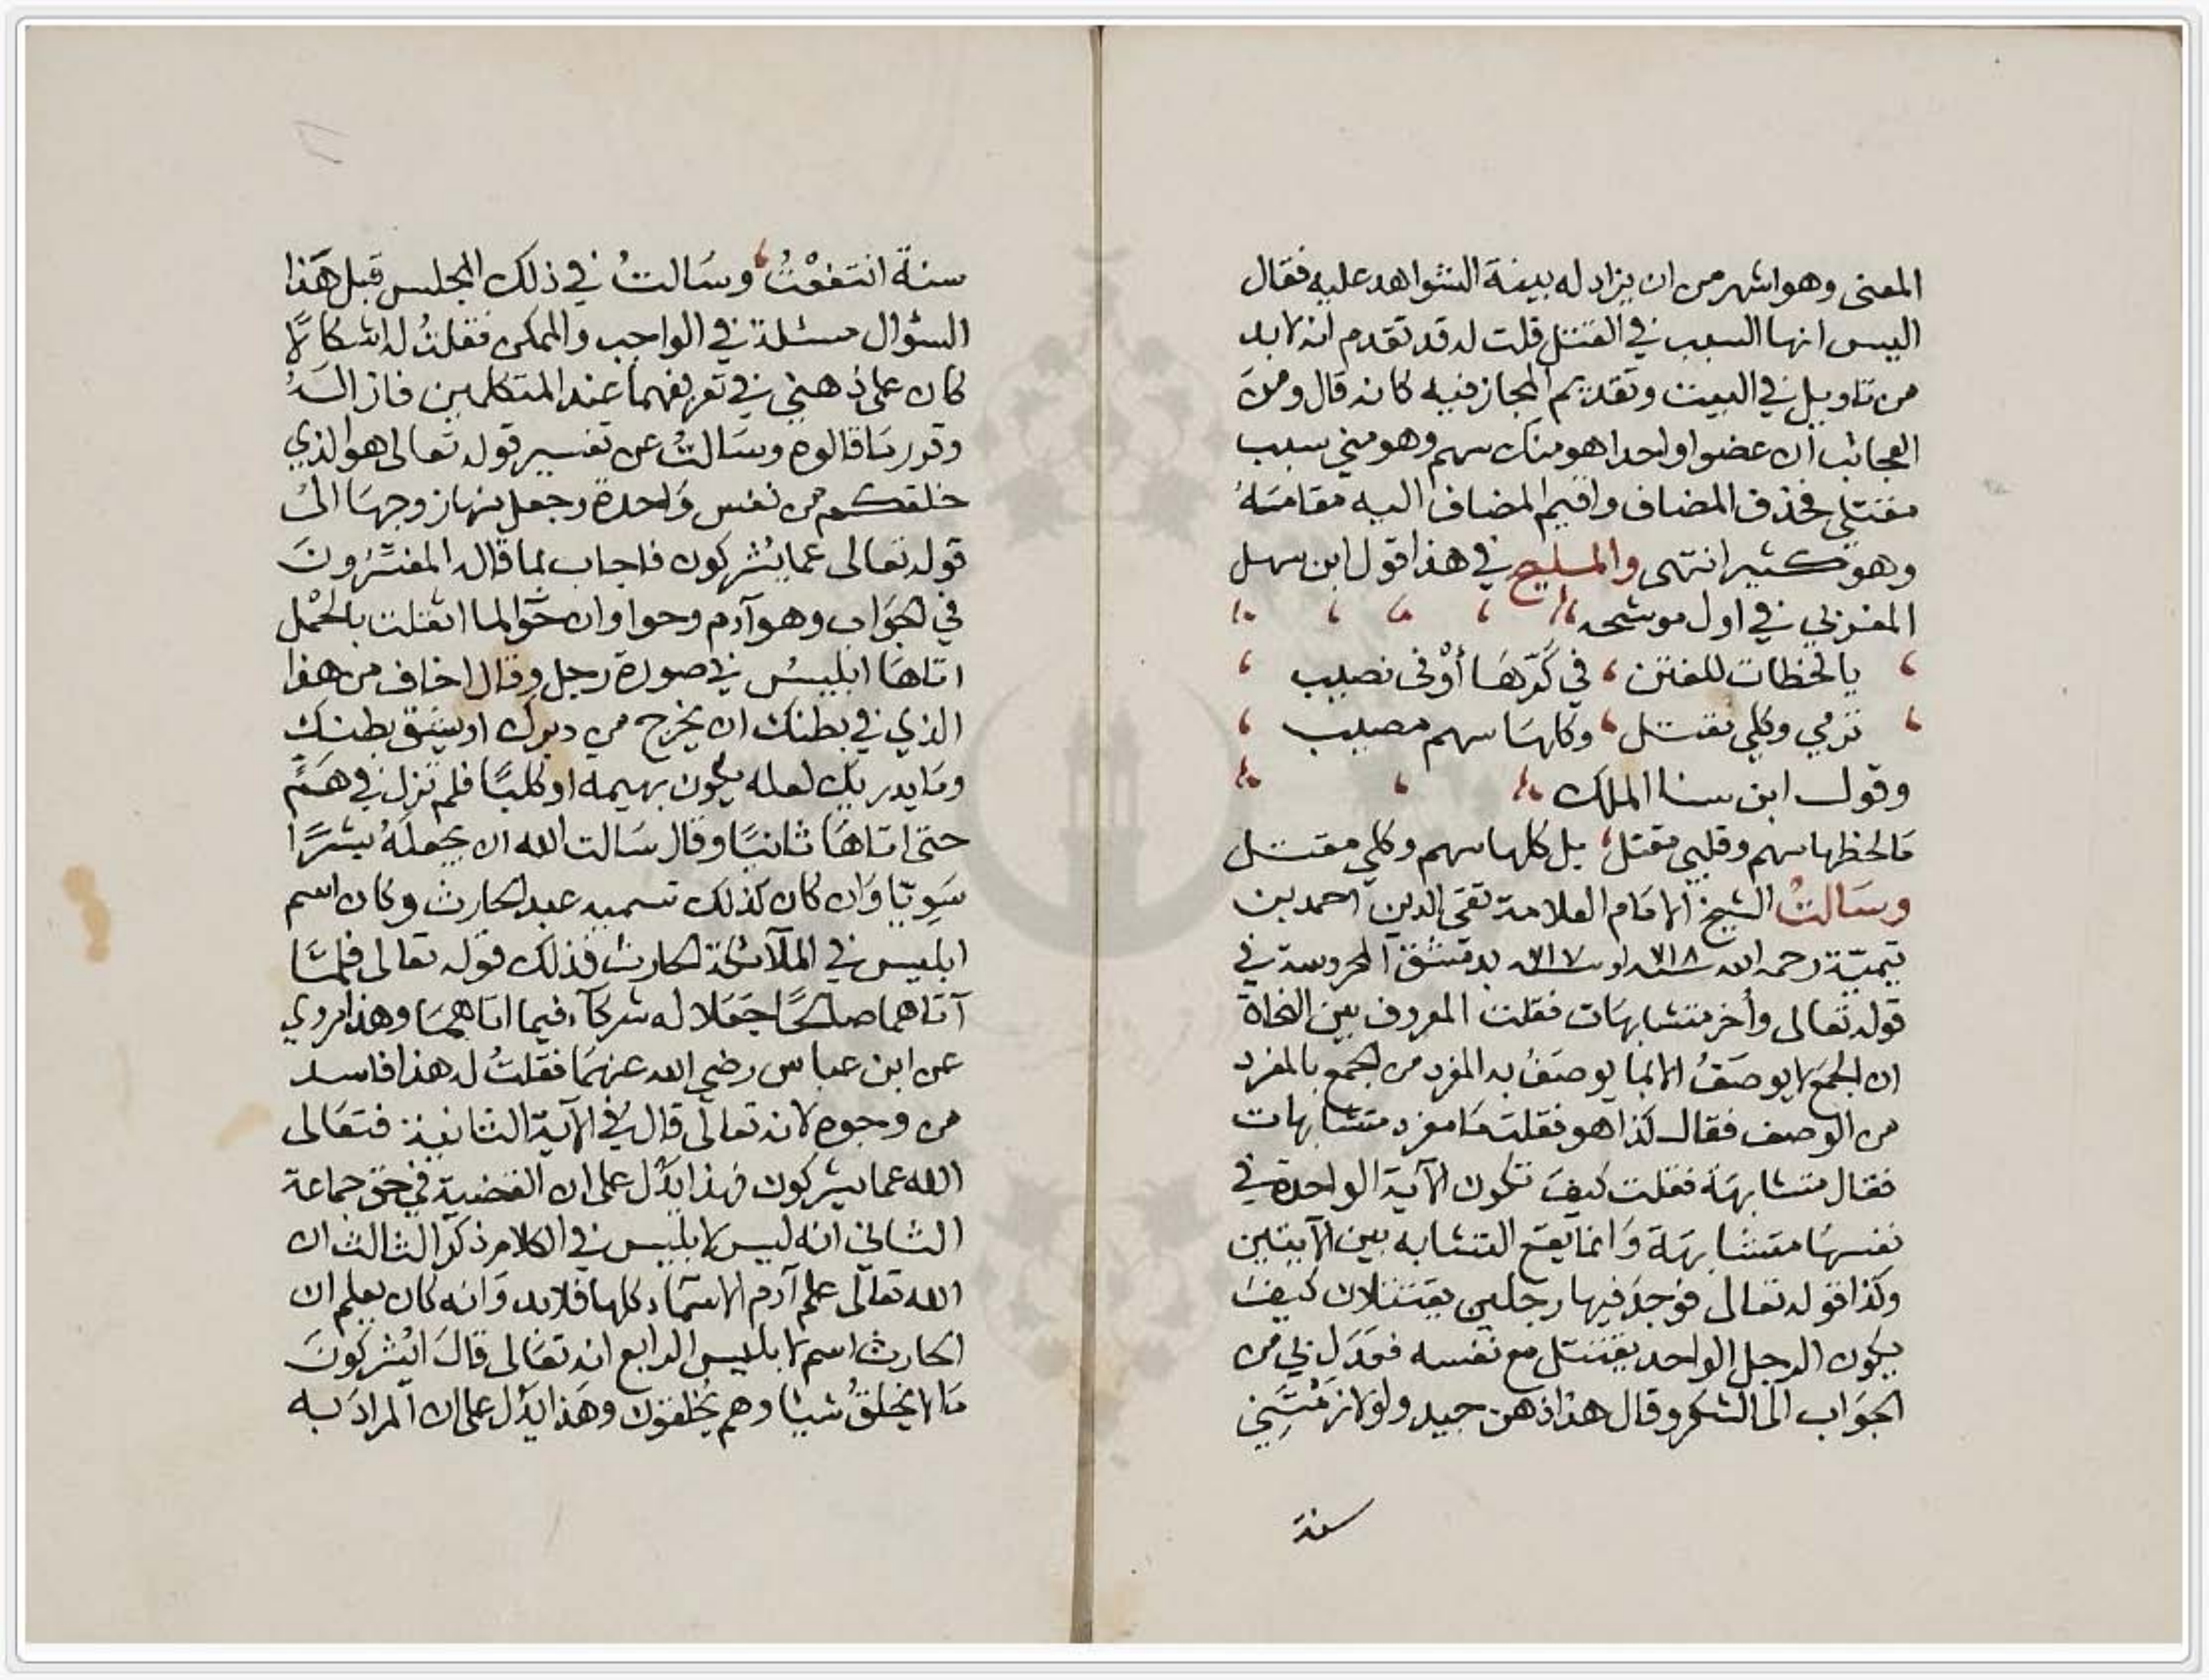 المعنى وهو اشهر من ان يزاد له بينة الشواهد عليه فقال
اليس انها السبب في القتل قلت له قد تقدم انه لا بد
من تاويل في البيت وتقديم المجاز فيه كانه قال ومن
العجائب ان عضوا واحدا هو منك سهم وهو مني سبب
مقتلي فحذف المضاف واقيم المضاف اليه مقامَهُ
وهو كثير انتهى والمليح في هذا قول ابن سهل
المغربي في اول موشحه
يا لحظات للفتن ، في كَرّهَا أوْفى نصيب
ترمي وكلي مقتل ، وكلها سهم مصيب
وقول ابن سنا الملك
فالحظها سهم وقلبي مقتل ، بل كلها سهم وكلي مقتل
وسَالتُ الشيخ الامَام العلامة تقي الدين احمد بن
تيميّة رحمه الله سنة ٧١٨ او سنة ٧١٧ بدمشق المحروسة في
قوله تعالى وأخر متشابهَات فقلت المعروف بين النحاة
ان الجمع لا يوصَفُ الا بما يوصَفُ به المفرد من الجمع بالمفرد
من الوصف فقال كذا هو فقلت مَا مفرد متشابهات
فقال متشابهَة فقلت كيفَ تكون الآية الواحدة في
نفسهَا متشابهَة وَانما يقع التشابه بين الآيتين
وكذا قوله تعالى فوَجدَ فيها رجلين يقتتلان كيفَ
يكون الرجل الواحد يقتتل مع نفسه فعَدَل بي من
الجوَاب الى الشكر وقال هذا ذهن جيد ولو لازمْتَني
سنة
سنةً انتفعْتُ ، وسَالتُ في ذلك المجلس قبل هَذا
السؤال مسئلة في الواجب والممكن فقلتُ له اشكالاً
كان على ذهني في تعريفهما عند المتكلمين فازالَهُ
وقرر مَا قالوه وسَالتُ عن تفسير قوله تعالى هو الذي
خلقكم من نفس وَاحدة وجعل منها زوجهَا الى
قوله تعالى عما يُشركون فاجاب بما قاله المفسّرُونَ
في الجوَاب وهو آدم وحوا وان حَوّا لما اثقلت بالحَمْل
اتاهَا ابليسُ في صورة رجل وقال اخاف من هذا
الذي في بطنك ان يخرج من دبرك او يشق بطنكِ
ومَا يدريكِ لعله يكون بهيمه او كلبًا فلم تزل في هَمٍّ
حتى اتاهَا ثانيًا وقال سَالت الله ان يجعلَهُ بشرًا
سَويّا وَان كان كذلك تسميه عبد الحارث وكان اسم
ابليس في الملآئكة الحارث فذلك قوله تعالى فلمَّا
آتاهما صالحًا جَعَلا له شركآء فيما اتاهمَا وهذا مروي
عن ابن عباس رضي الله عنهمَا فقلتُ له هذا فاسد
من وجوه لانه تعالى قال في الآية الثانية فتعَالى
الله عما يشركون فهذا يَدُل على ان القضية في حق جماعة
الثاني انه ليس لابليس في الكلام ذكر الثالث ان
الله تعالى علم آدم الاسمَاء كلها فلا بد وَانه كان يعلم ان
الحارث اسم لابليس الرابع انه تعَالى قالَ ايُشركونَ
مَا لا يخلقُ شيئا وهم يُخلقون وهَذا يَدُل على ان المرادَ به